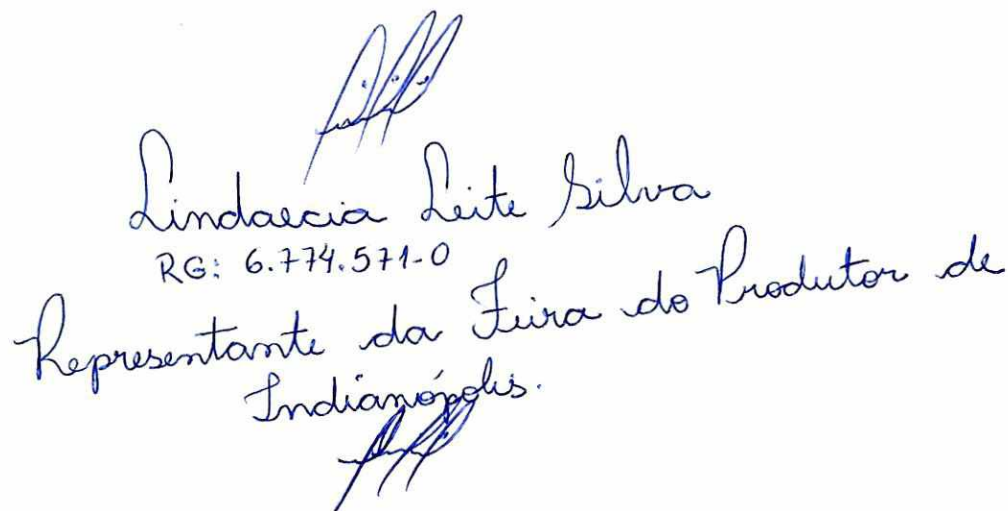 Lindaecia Leite Silva
RG: 6.774.571-0
Representante da Feira do Produtor de
Indianópolis.